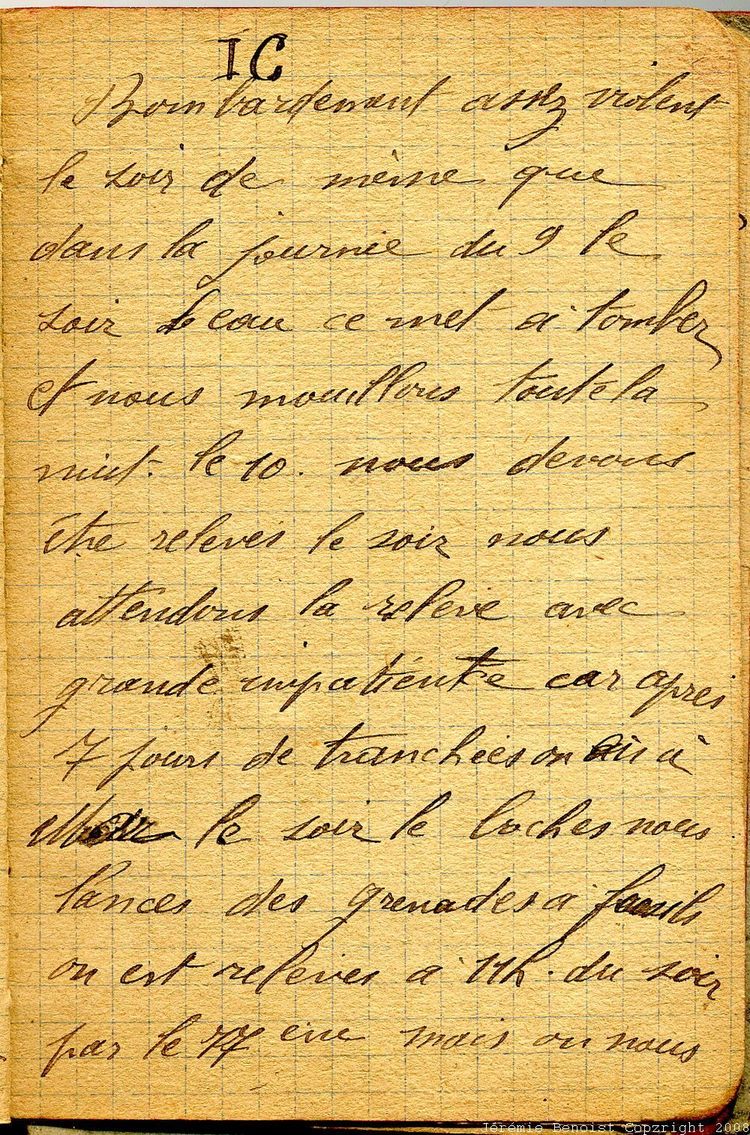 IC
Bombardement assez violent
le soir de même que
dans la journée du 9 le
soir l'eau ce met à tomber
et nous mouillons toute la
nuit. le 10. nous devons
être relevés le soir nous
attendons la relève avec
grande impatiente car après
7 jours de tranchées on
le soir le boches nous
lances des grenades a fusils
on est relevés à 11h. du soir
par le 77 ème mais on nous
Jérémie Benoist Copzright 2008